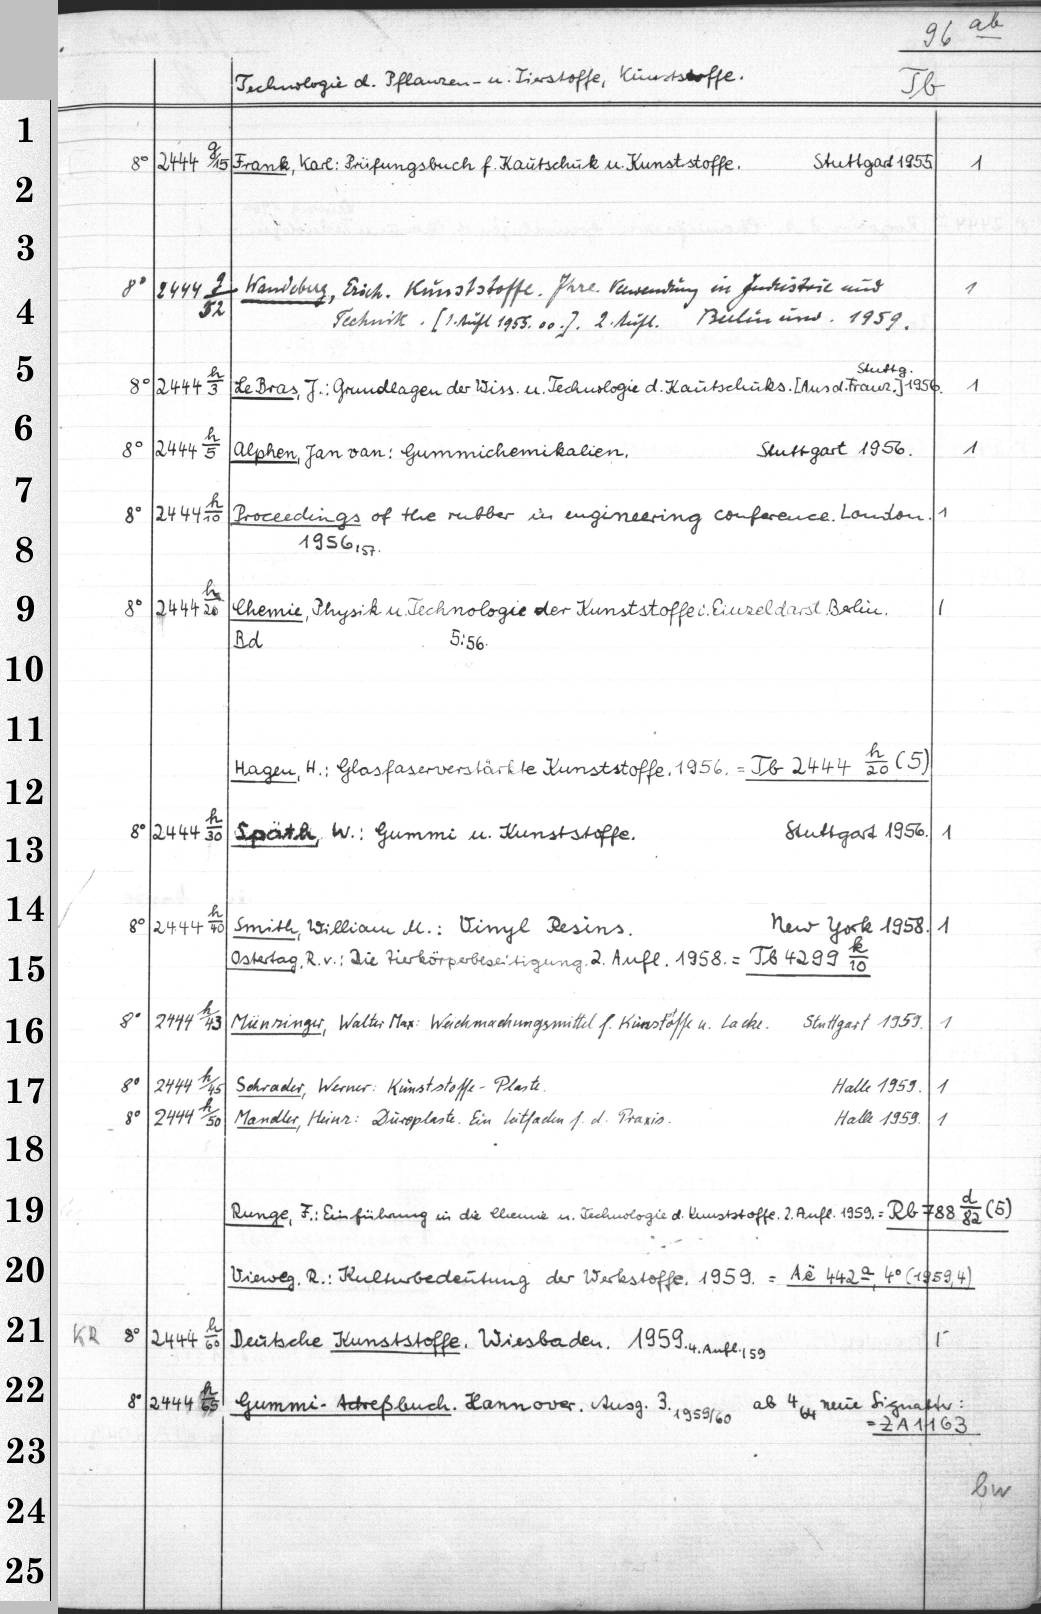 96 ab
Technologie d. Pflanzen- u. Tierstoffe, Kunststoffe. Tb
1
8° 2444 g/15 Frank, Karl: Prüfungsbuch f. Kautschuk u. Kunststoffe. Stuttgart 1955 1
2
3
8° 2444 g/52 Wandeberg, Erich. Kunststoffe. Ihre Verwendung in Industrie und 1
4
Technik. [1. Aufl 1955. oo.]. 2. Aufl. Berlin usw. 1959.
5
Stuttg.
8° 2444 h/3 Le Bras, J.: Grundlagen der Wiss. u. Technologie d. Kautschuks. [Aus d. Franz.] 1956. 1
6
8° 2444 h/5 Alphen, Jan van: Gummichemikalien. Stuttgart 1956. 1
7
8° 2444 h/10 Proceedings of the rubber in engineering conference. London. 1
8
1956,57.
9
8° 2444 h/20 Chemie, Physik u. Technologie der Kunststoffe i. Einzeldarst. Berlin. 1
Bd 5:56.
10
11
12
Hagen, H.: Glasfaserverstärkte Kunststoffe. 1956. = Tb 2444 h/20 (5)
8° 2444 h/30 Späth, W.: Gummi u. Kunststoffe. Stuttgart 1956. 1
13
14
8° 2444 h/40 Smith, William M.: Vinyl Resins. New York 1958. 1
15
Ostertag, R. v.: Die Tierkörperbeseitigung. 2. Aufl. 1958. = Tb 4299 k/10
16
8° 2444 h/43 Münzinger, Walter Max: Weichmachungsmittel f. Kunstoffe u. Lacke. Stuttgart 1959. 1
17
8° 2444 h/45 Schrader, Werner: Kunststoffe - Plaste. Halle 1959. 1
8° 2444 h/50 Mandler, Heinz: Duroplaste. Ein Leitfaden f. d. Praxis. Halle 1959. 1
18
19
Runge, F.: Einführung in die Chemie u. Technologie d. Kunststoffe. 2. Aufl. 1959. = Rb 788 d/82 (5)
20
Vieweg, R.: Kulturbedeutung der Werkstoffe. 1959. = Aë 442 a, 4° (1959,4)
21
KR 8° 2444 h/60 Deutsche Kunststoffe. Wiesbaden. 1959. 4. Aufl. 59
22
8° 2444 h/65 Gummi-Adreßbuch. Hannover. Ausg. 3. 1959/60 ab 4 64 neue Signatur:
= ZA 1163
23
bw
24
25